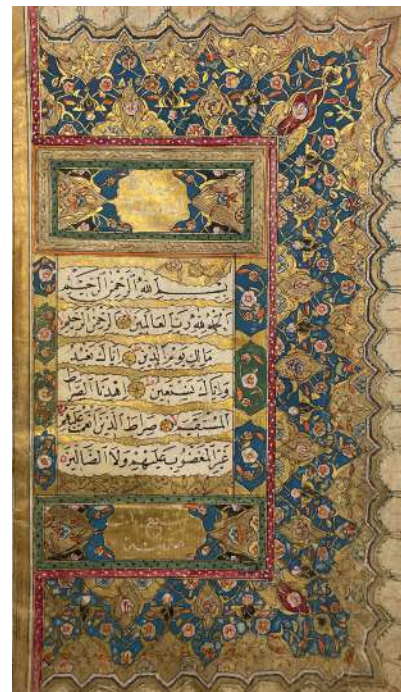 بِسْمِ اللهِ الرَّحْمٰنِ الرَّحِيْمِ
اَلْحَمْدُ لِلّٰهِ رَبِّ الْعَالَمِيْنَ الرَّحْمٰنِ الرَّحِيْمِ
مَالِكِ يَوْمِ الدِّيْنِ اِيَّاكَ نَعْبُدُ
وَاِيَّاكَ نَسْتَعِيْنُ اِهْدِنَا الصِّرَاطَ
الْمُسْتَقِيْمَ صِرَاطَ الَّذِيْنَ اَنْعَمْتَ عَلَيْهِمْ
غَيْرِ الْمَغْضُوْبِ عَلَيْهِمْ وَلَا الضَّالِّيْنَ